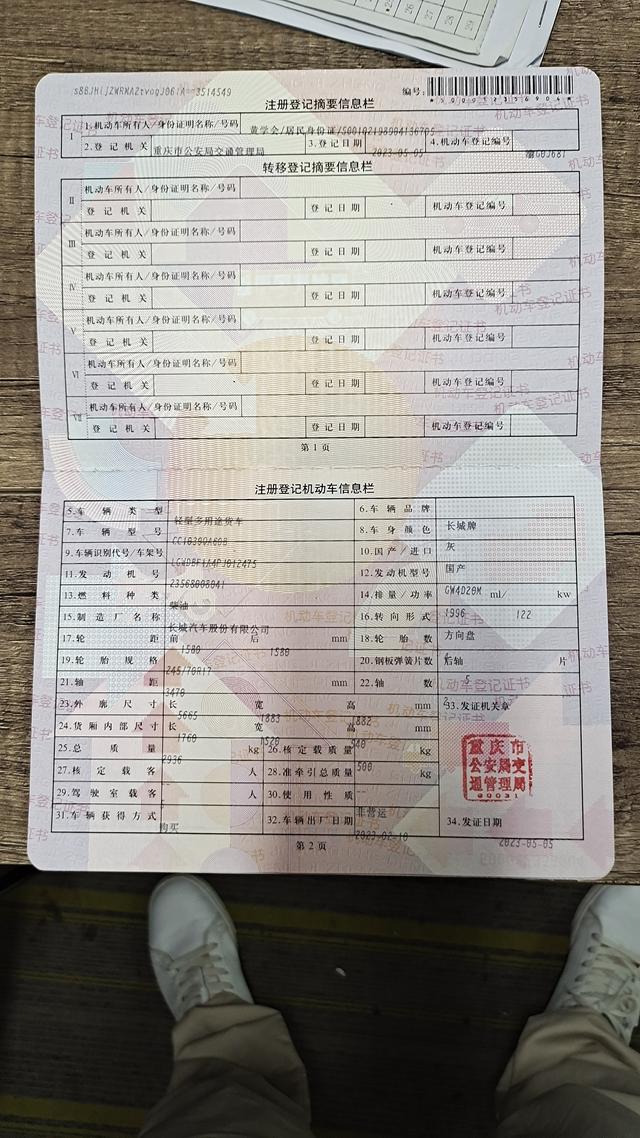 编号:
注册登记摘要信息栏
Ⅰ 1.机动车所有人/身份证明名称/号码 黄学会/居民身份证/
2.登记机关 重庆市公安局交通管理局 3.登记日期 2023-05-05 4.机动车登记编号
转移登记摘要信息栏
Ⅱ 机动车所有人/身份证明名称/号码
登记机关 登记日期 机动车登记编号
Ⅲ 机动车所有人/身份证明名称/号码
登记机关 登记日期 机动车登记编号
Ⅳ 机动车所有人/身份证明名称/号码
登记机关 登记日期 机动车登记编号
Ⅴ 机动车所有人/身份证明名称/号码
登记机关 登记日期 机动车登记编号
Ⅵ 机动车所有人/身份证明名称/号码
登记机关 登记日期 机动车登记编号
Ⅶ 机动车所有人/身份证明名称/号码
登记机关 登记日期 机动车登记编号
第1页
注册登记机动车信息栏
5.车辆类型 轻型多用途货车 6.车辆品牌 长城牌
7.车辆型号 8.车身颜色 灰
9.车辆识别代号/车架号 10.国产/进口 国产
11.发动机号 12.发动机型号 GW4D20M
13.燃料种类 柴油 14.排量/功率 1996 ml/ 122 kw
15.制造厂名称 长城汽车股份有限公司 16.转向形式 方向盘
17.轮距 前 1580 后 1580 mm 18.轮胎数
19.轮胎规格 245/70R17 20.钢板弹簧片数 后轴 5 片
21.轴距 3470 mm 22.轴数 2
23.外廓尺寸 长 5665 宽 1883 高 1882 mm 33.发证机关章
24.货厢内部尺寸 长 1760 宽 1520 高 540 mm
25.总质量 2936 kg 26.核定载质量 500 kg
27.核定载客 人 28.准牵引总质量 kg
29.驾驶室载客 人 30.使用性质 非营运
31.车辆获得方式 购买 32.车辆出厂日期 2023-02-10 34.发证日期 2023-05-05
重庆市
公安局交
通管理局
第2页